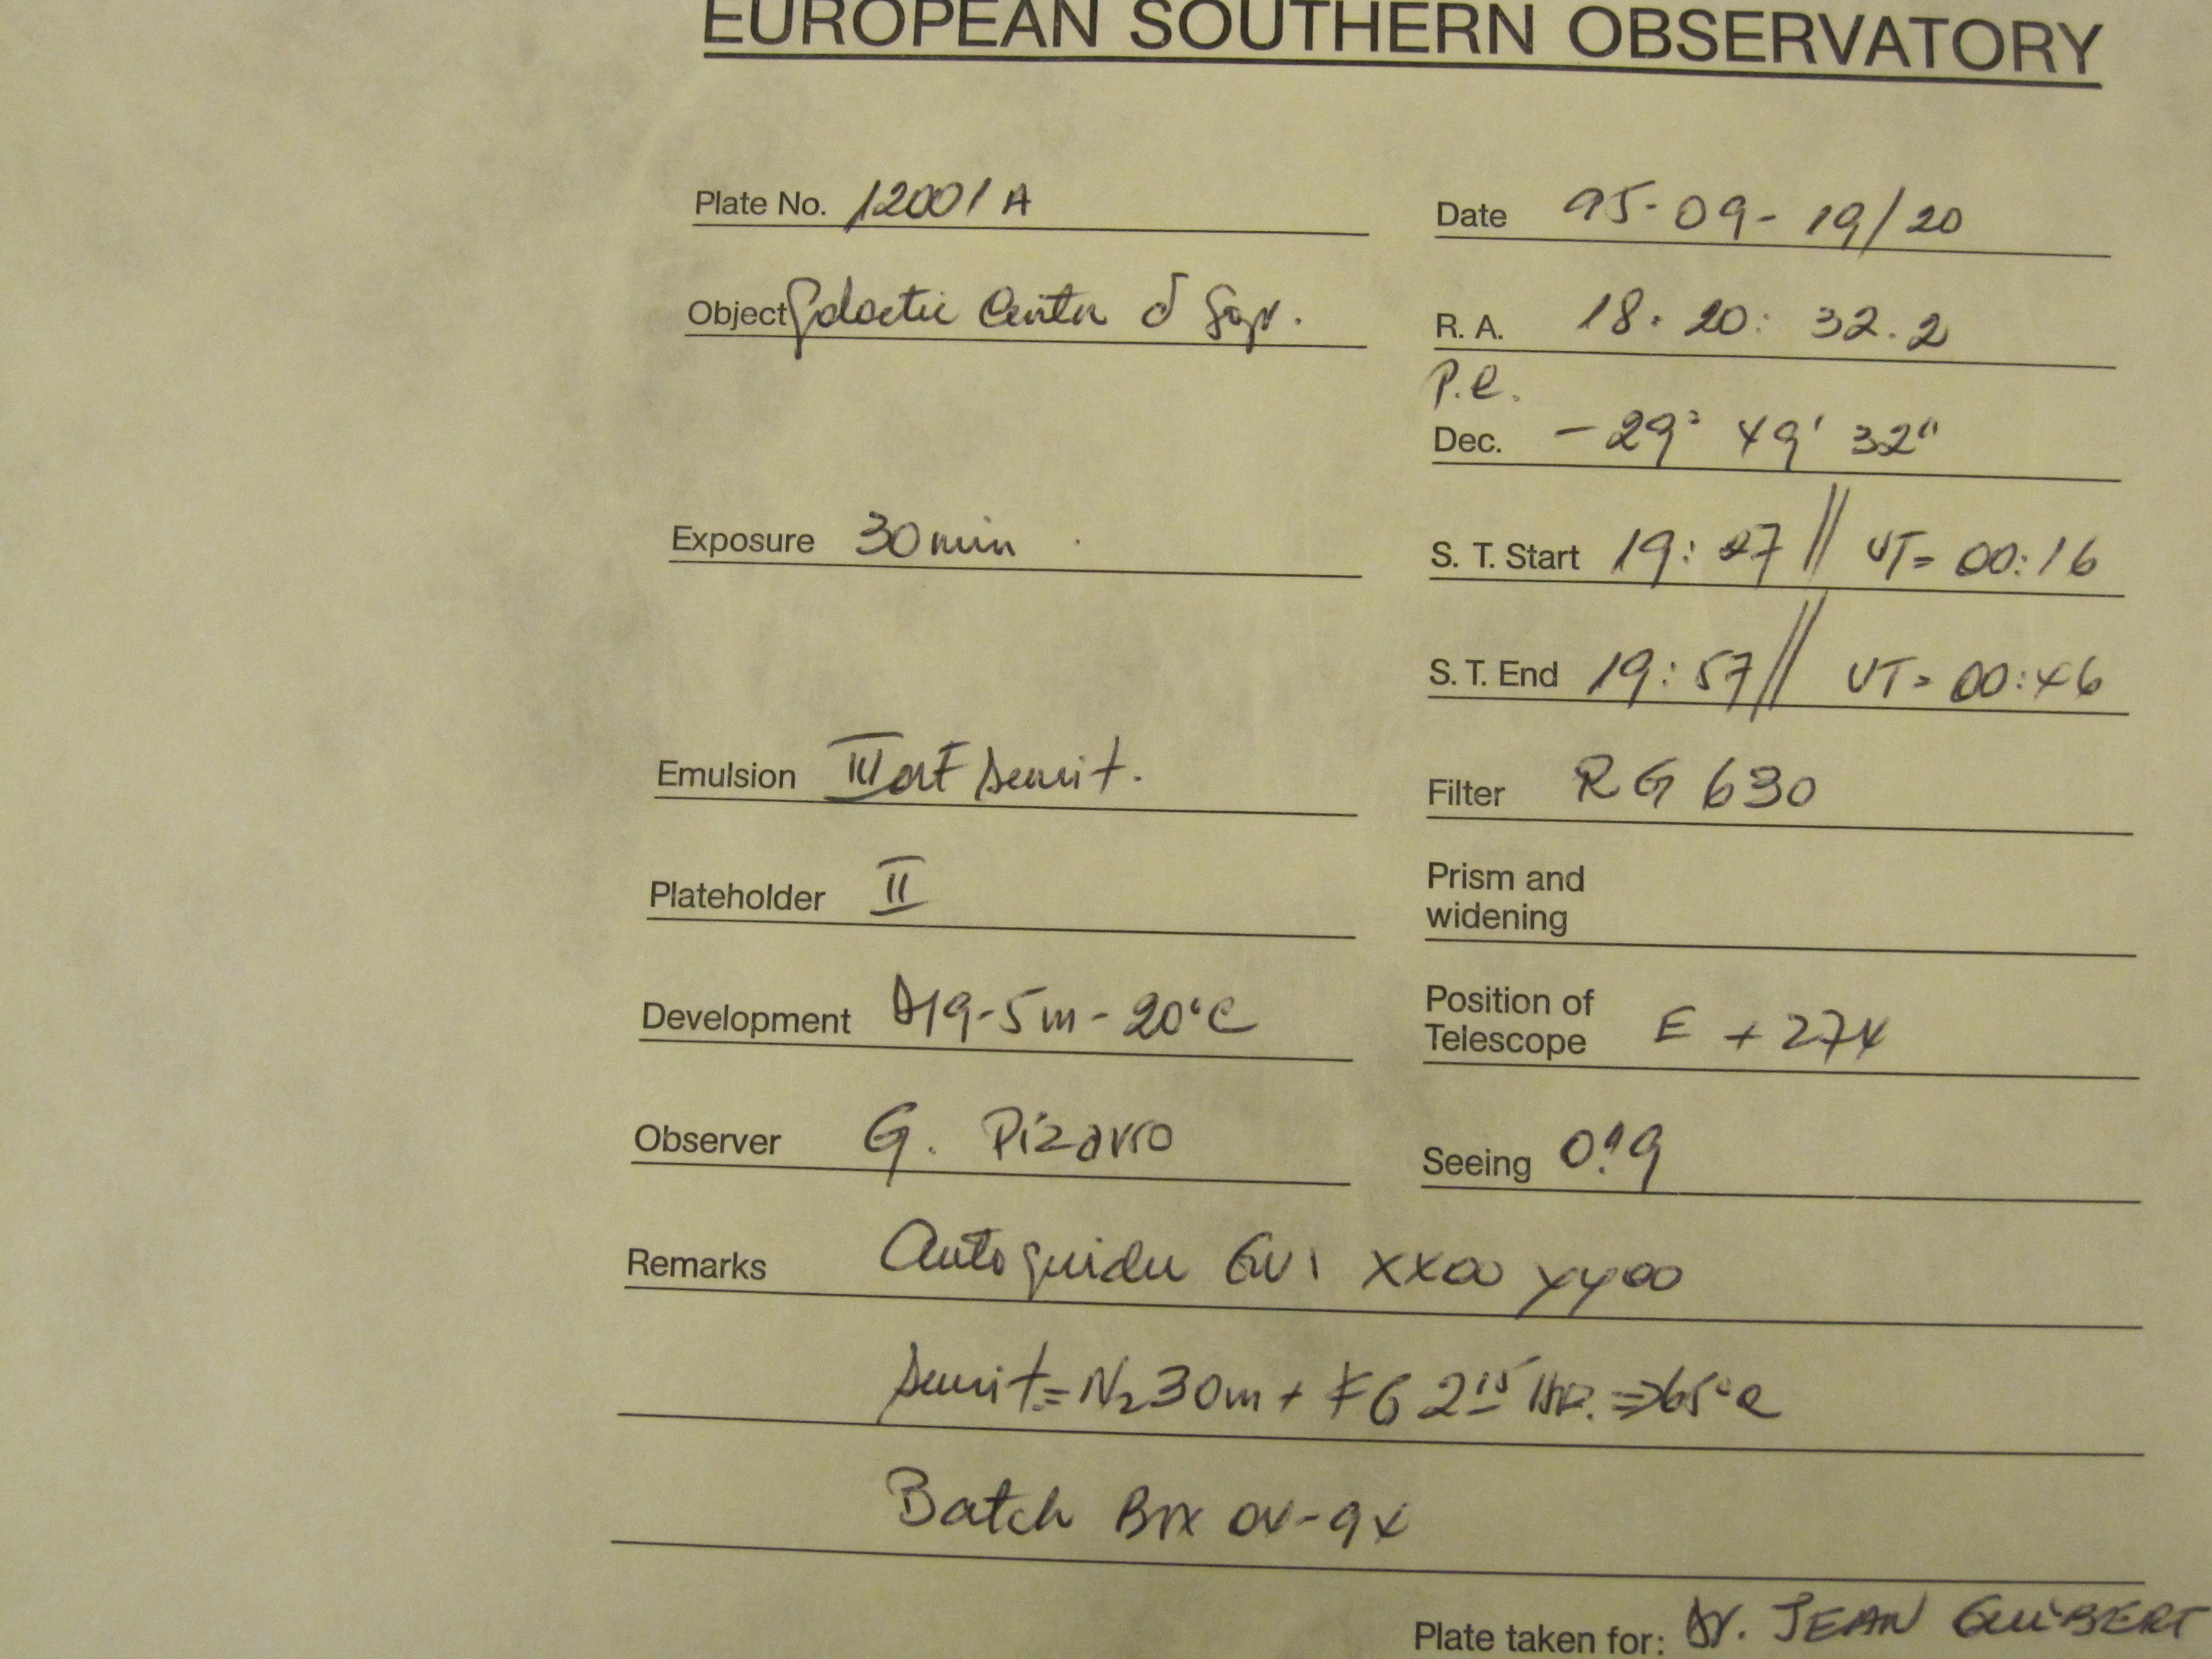 EUROPEAN SOUTHERN OBSERVATORY
Plate No. 12001 A
Date 95-09-19/20
Object Galactic Center δ Sgr.
R. A. 18: 20: 32.2
P.e.
Dec. -29° 49' 32"
Exposure 30 min
S. T. Start 19: 27 // UT= 00:16
S. T. End 19: 57 // UT= 00:46
Emulsion IIIaF sensit.
Filter RG 630
Plateholder II
Prism and
widening
Development D19-5m-20°C
Position of
Telescope E + 274
Observer G. Pizarro
Seeing 0."9
Remarks Autoguider XX00 YY00
sensit.= N2 30m + FG 2 => 65°C
Batch Box 04-94
Plate taken for: Dr. JEAN GUIBERT